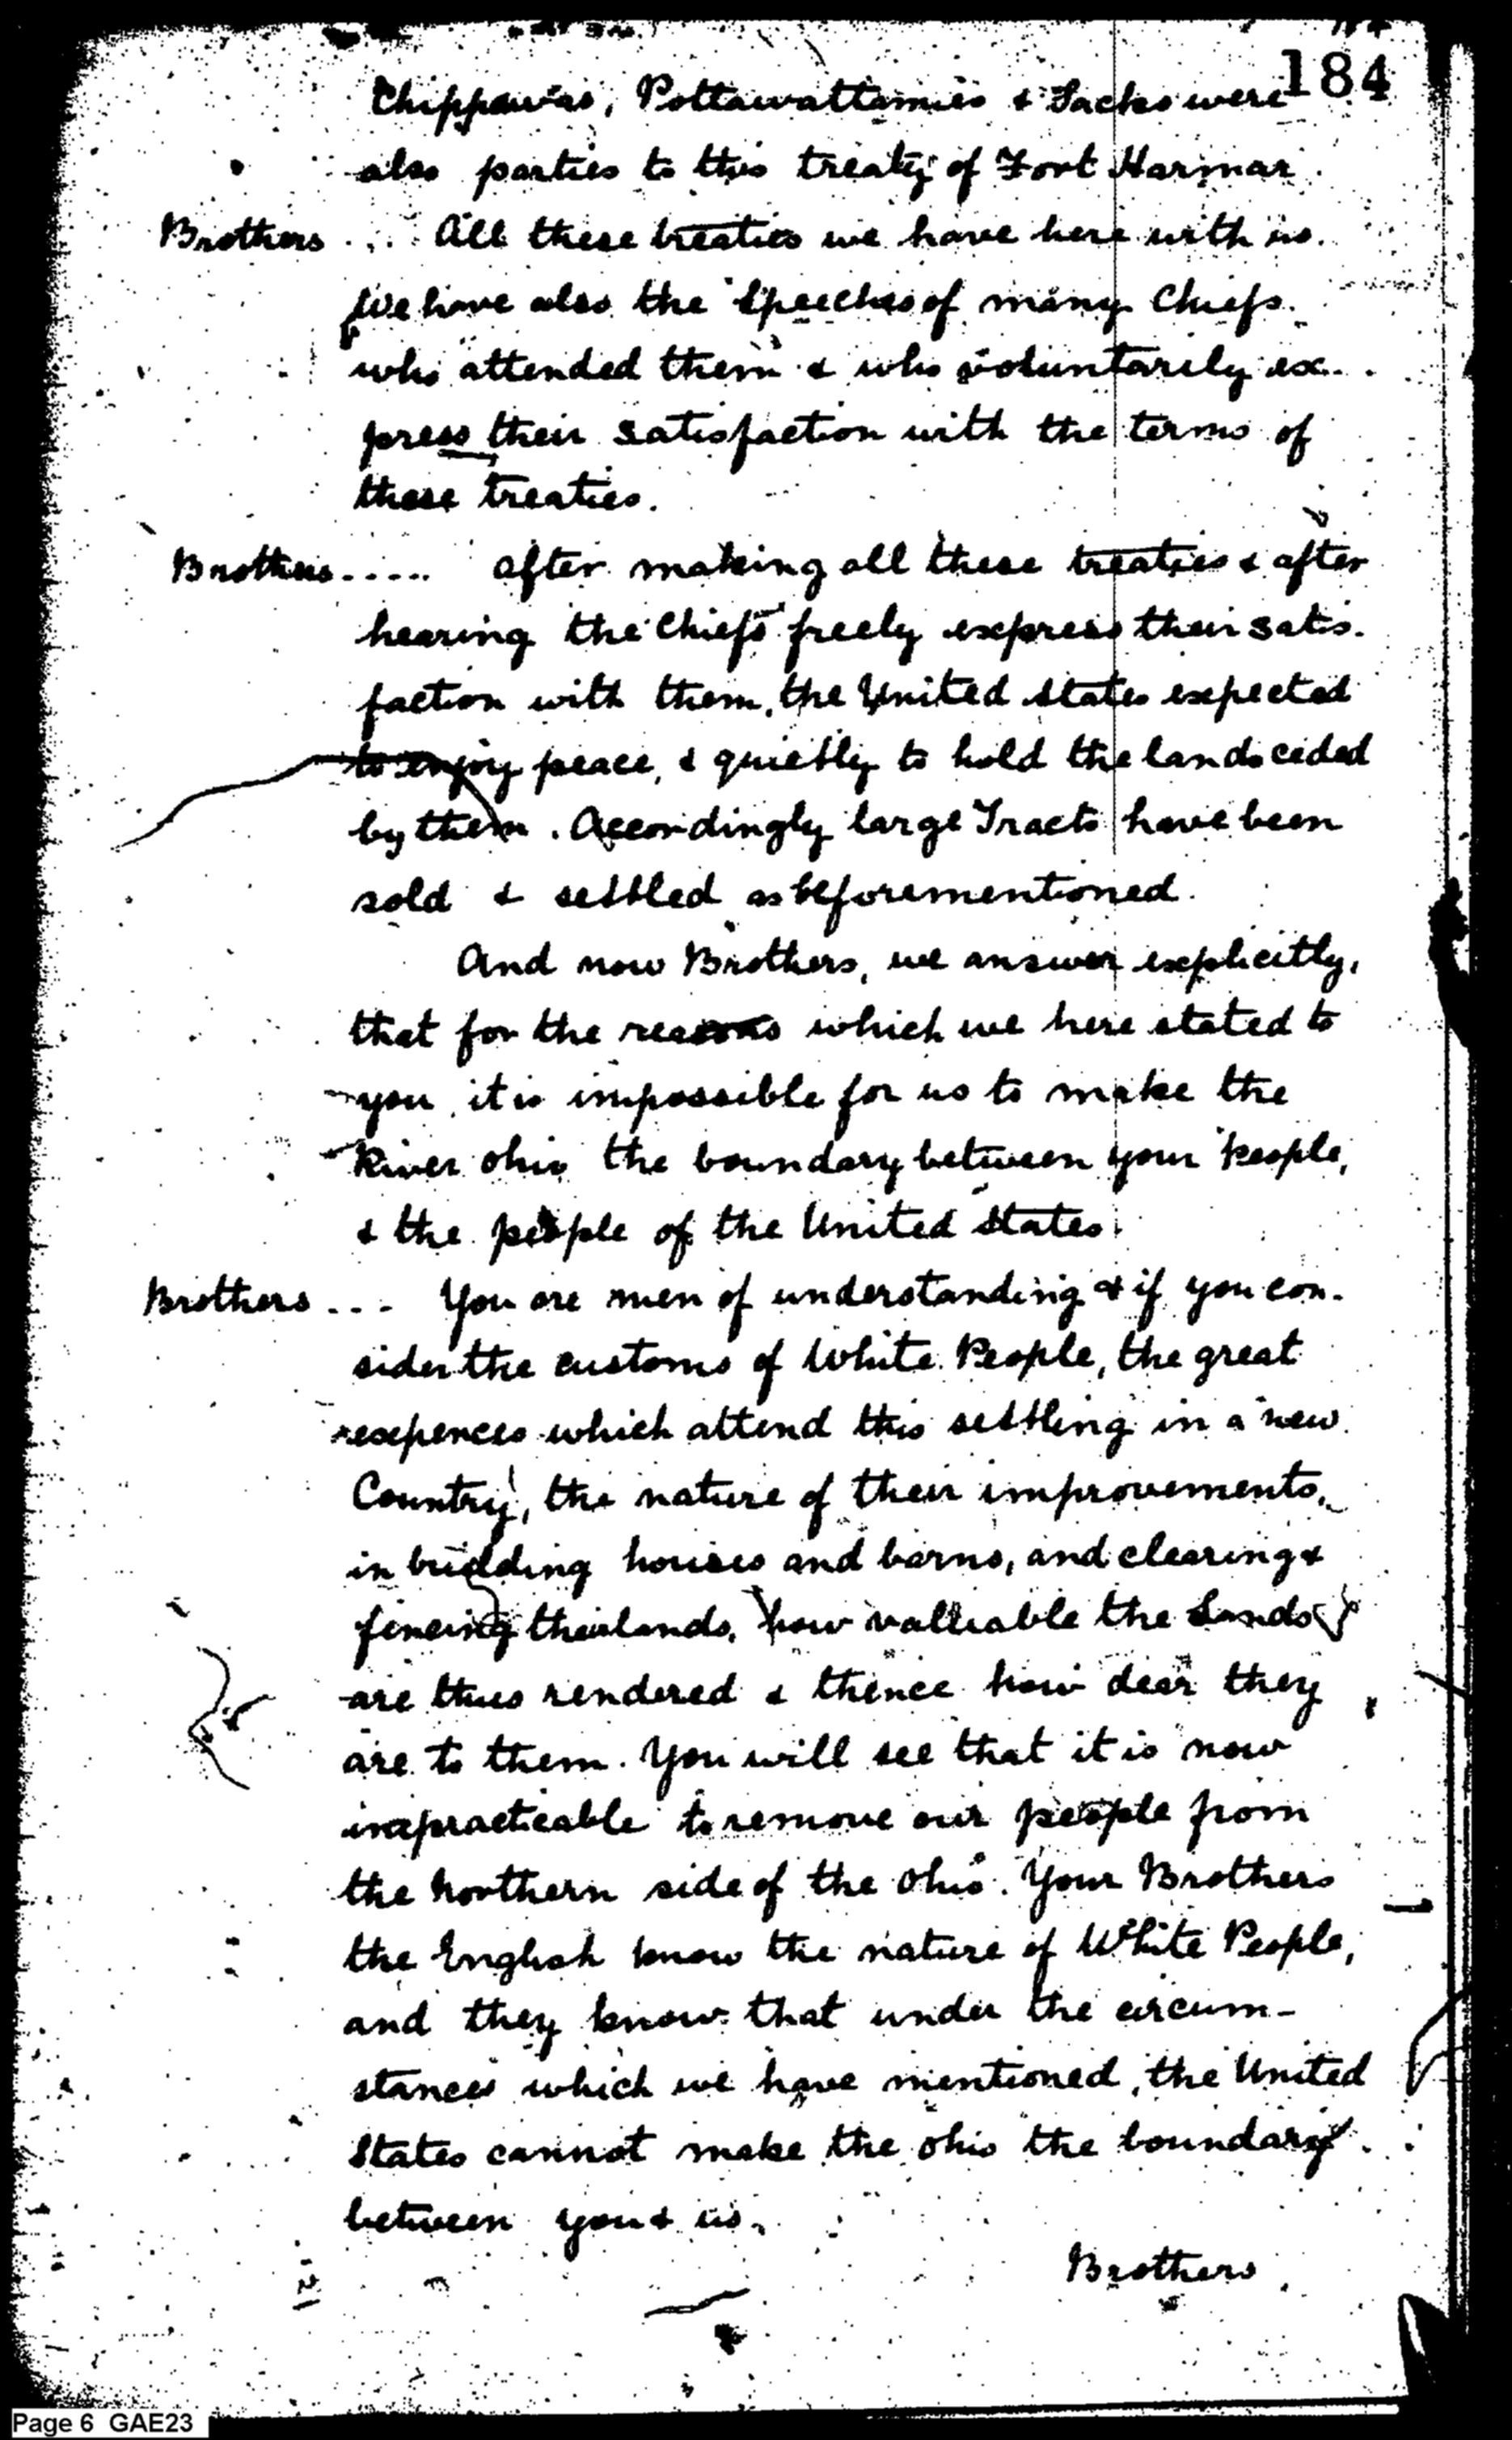 184
Chippawas, Pottawattamies & Sacks were
also parties to this treaty of Fort Harmar.
Brothers ... All these treaties we have here with us.
We have also the Speeches of many Chiefs.
who attended them & who voluntarily ex-
press their satisfaction with the terms of
these treaties.
Brothers ..... after making all these treaties & after
hearing the Chiefs freely express their satis-
faction with them, the United States expected
to enjoy peace, & quietly to hold the lands ceded
by them. Accordingly large Tracts have been
sold & settled as beforementioned.
And now Brothers, we answer explicitly,
that for the reasons which we here stated to
you, it is impossible for us to make the
River Ohio the boundary between your people,
& the people of the United States.
Brothers ... You are men of understanding & if you con-
sider the customs of White People, the great
expences which attend this settling in a new
Country, the nature of their improvements,
in building houses and barns, and clearing &
fencing their lands, how valluable the Lands
are thus rendered & thence how dear they
are to them. You will see that it is now
impracticable to remove our people from
the northern side of the Ohio. Your Brothers
the English know the nature of White People,
and they know that under the circum-
stances which we have mentioned, the United
States cannot make the Ohio the boundary
between you & us.
Brothers
Page 6 GAE23